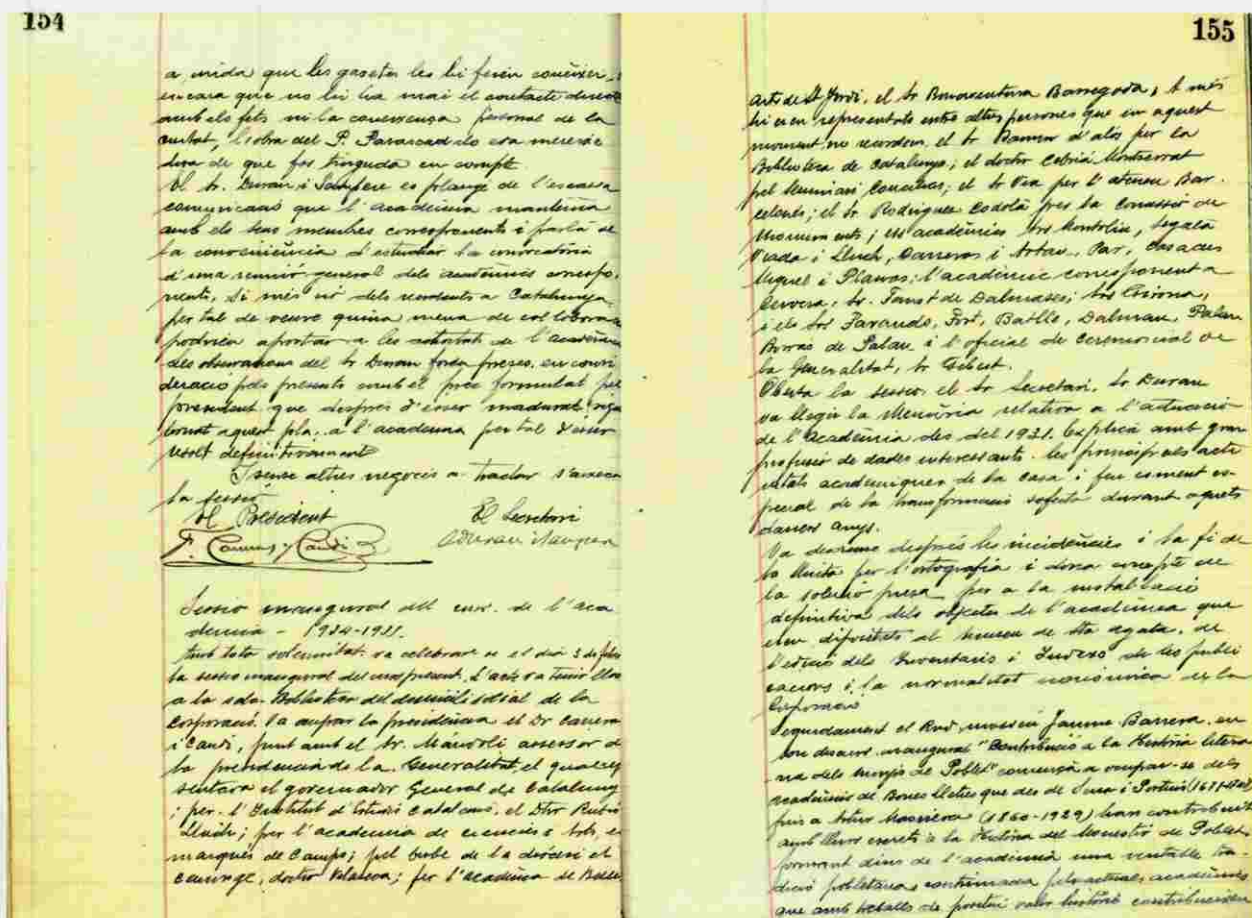 154
a mida que les gasetes les hi feien conèixer, i
encara que no hi ha mai el contacte directe
amb els fets ni la coneixença personal de la
ciutat, l'obra del P. es mereixe
dora de que fos tinguda en compte.
El Sr. Duran i Sanpere es plange de l'escassa
comunicació que l'acadèmia mantenia
amb els seus membres corresponents i parlà de
la conveniència d'estudiar la convocatòria
d'una reunió general dels acadèmics correspo-
nents, si més nó dels residents a Catalunya
per tal de veure quina mena de col·labora
podrien aportar a les activitats de l'acadèmia
les observacions del Sr Duran foren preses en consi
deració pels presents amb el prec formulat pel
president que després d'ésser madurat, sigui
tornat aquest pla, a l'acadèmia per tal d'esser
resolt definitivament
I sense altres negocis a tractar s'aixeca
la sessió
El President El Secretari
F. Carreras y Candi A Duran i Sanpere
Sessió inaugural del curs de l'aca
dèmia - 1934-1935.
Amb tota solemnitat va celebrar-se el dia 3 de febr
la sessió inaugural del curs present. L'acte va tenir lloc
a la sala-Biblioteca del domicili social de la
Corporació. Va ocupar la presidència el Dr Carrera
i Candi, junt amb el Sr. Màndoli assessor de
la presidencia de la Generalitat, el qual rep
sentava el governador General de Catalunya
; per l'Institut d'Estudis Catalans, el Dtor Rubió
Lluch; per l'acadèmia de ciències i Arts, el
marquès de Camps; pel bisbe de la diòcesi el
canonge, doctor Vilaseca; per l'acadèmia de Belles
155
arts de St Jordi, el Sr Bonaventura Bassegoda, A més
hi eren representats entre altres persones que en aquest
moment no recordem, el Sr Ramon d'alòs per la
Biblioteca de Catalunya; el doctor Cebrià Montserrat
pel Seminari Conciliar; el Sr Via per l'ateneu Bar-
celonès; el Sr. Rodriguez Codolà per la Comissió de
Monuments; els acadèmics Srs Montoliu, Segalà
Viada i Lluch, Carreras i Artau, Par, Casacus
Miquel i Planas; l'acadèmic corresponent a
Cervera, Sr. Faust de Dalmases; Srs Girona,
i els Srs Farando, Fort, Batlle, Dalmau, Palau
Borràs de Palau i l'oficial de Ceremonial de
la Generalitat, Sr Gibert.
Oberta la sessió, el Sr Secretari, Sr Duran
va llegir la Memòria relativa a l'actuació
de l'Acadèmia des del 1931. Explicà amb gran
profusió de dades interessants les principals acti
vitats acadèmiques de la casa i feu esment es
pecial de la transformació soferta durant aquets
darrers anys.
Va descriure després les incidències i la fi de
la lluita per l'ortografia i dona compte de
la solució presa per a la instal·lació
definitiva dels objectes de l'acadèmia que
eren dipositats al museu de Sta agata, de
l'edició dels Inventaris i Indexs de les publi
cacions i la normalitat econòmica de la
Corporació
Seguidament el Rvd. mossèn Jaume Barrera, en
son discurs inaugural "Contribució a la Història literà
ria dels monjos de Poblet" comença a ocupar-se dels
acadèmics de Bones Lletres que des de
fins a Artur Masriera (1860-1929) han contribuit
amb llurs escrits a la Història del Monestir de Poblet,
formant dins de l'acadèmia una veritable tra-
dició pobletana, continuada pels actuals acadèmics
que amb treballs de positiu valor històric contribueixen